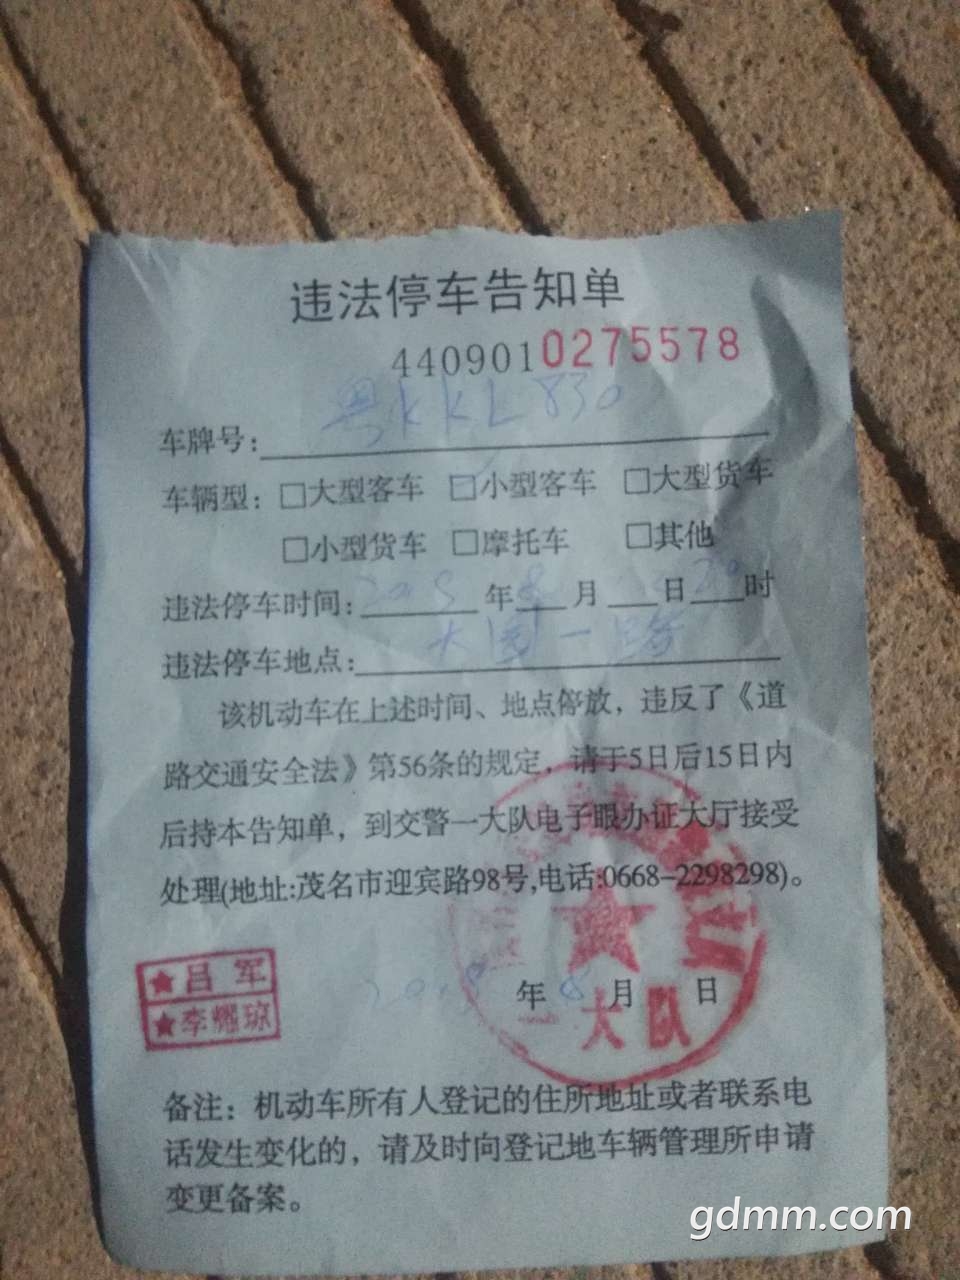 违法停车告知单
4409010275578
车牌号：粤KKL830
车辆型：□大型客车 ☑小型客车 □大型货车
□小型货车 □摩托车 □其他
违法停车时间：2015年8月 日20时
违法停车地点：大园一路
该机动车在上述时间、地点停放，违反了《道
路交通安全法》第56条的规定，请于5日后15日内
后持本告知单，到交警一大队电子眼办证大厅接受
处理(地址:茂名市迎宾路98号,电话:0668-2298298)。
吕军
李耀琼
2015年8月 日
大队
备注：机动车所有人登记的住所地址或者联系电
话发生变化的，请及时向登记地车辆管理所申请
变更备案。
gdmm.com